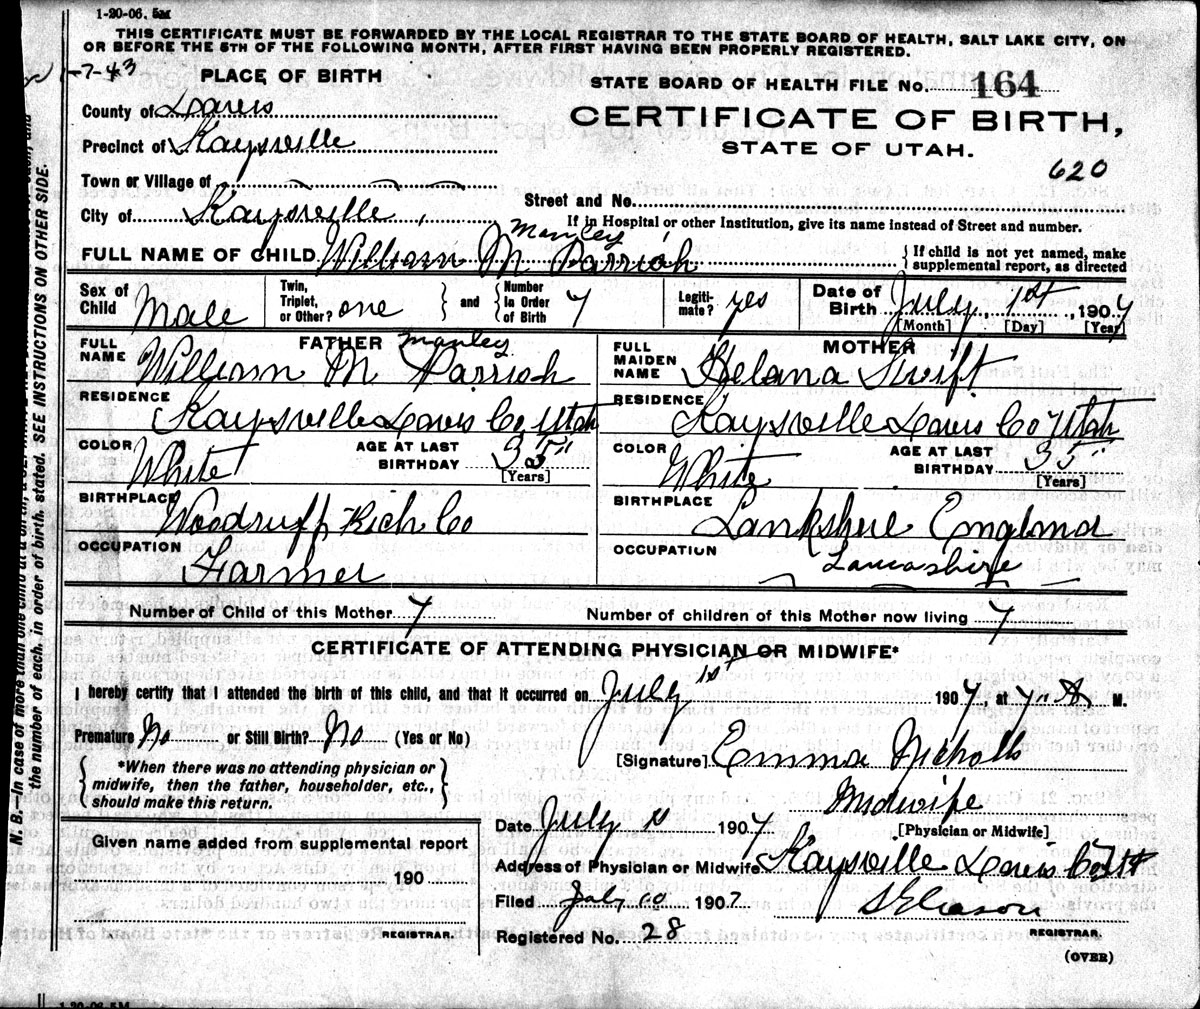 1-20-06. 5M
THIS CERTIFICATE MUST BE FORWARDED BY THE LOCAL REGISTRAR TO THE STATE BOARD OF HEALTH, SALT LAKE CITY, ON
OR BEFORE THE 5TH OF THE FOLLOWING MONTH, AFTER FIRST HAVING BEEN PROPERLY REGISTERED.
-7-43
PLACE OF BIRTH
STATE BOARD OF HEALTH FILE No. 164
County of Davis
CERTIFICATE OF BIRTH,
Precinct of Kaysville
STATE OF UTAH.
620
Town or Village of
Street and No.
City of Kaysville,
If in Hospital or other Institution, give its name instead of Street and number.
Manley
FULL NAME OF CHILD William M Parrish
If child is not yet named, make supplemental report, as directed
Sex of Child Male
Twin, Triplet, or Other? one and Number in Order of Birth 7
Legitimate? yes
Date of Birth July, 1st, 1907
[Month] [Day] [Year]
FATHER Manley
FULL NAME William M Parrish
MOTHER
FULL MAIDEN NAME Helana Swift
RESIDENCE Kaysville Davis Co, Utah
RESIDENCE Kaysville Davis Co Utah
COLOR White AGE AT LAST BIRTHDAY 35" [Years]
COLOR White AGE AT LAST BIRTHDAY 35" [Years]
BIRTHPLACE Woodruff Rich Co
BIRTHPLACE Lankshire England
OCCUPATION Farmer
OCCUPATION Lancashire
Number of Child of this Mother 7 Number of children of this Mother now living 7
CERTIFICATE OF ATTENDING PHYSICIAN OR MIDWIFE*
I hereby certify that I attended the birth of this child, and that it occurred on July 1st 1907, at 7 A M.
Premature No or Still Birth? No (Yes or No)
[Signature] Emma Nicholls
*When there was no attending physician or
midwife, then the father, householder, etc.,
should make this return.
Midwife
[Physician or Midwife]
Date July 1907.
Given name added from supplemental report
190
REGISTRAR.
Address of Physician or Midwife Kaysville Davis Co Ut
Filed July 10 1907
S Gleason
REGISTRAR.
Registered No. 28
(OVER)
N. B.—In case of more than one child at a birth,
the number of each, in order of birth, stated. SEE INSTRUCTIONS ON OTHER SIDE.
1-20-06. 5M